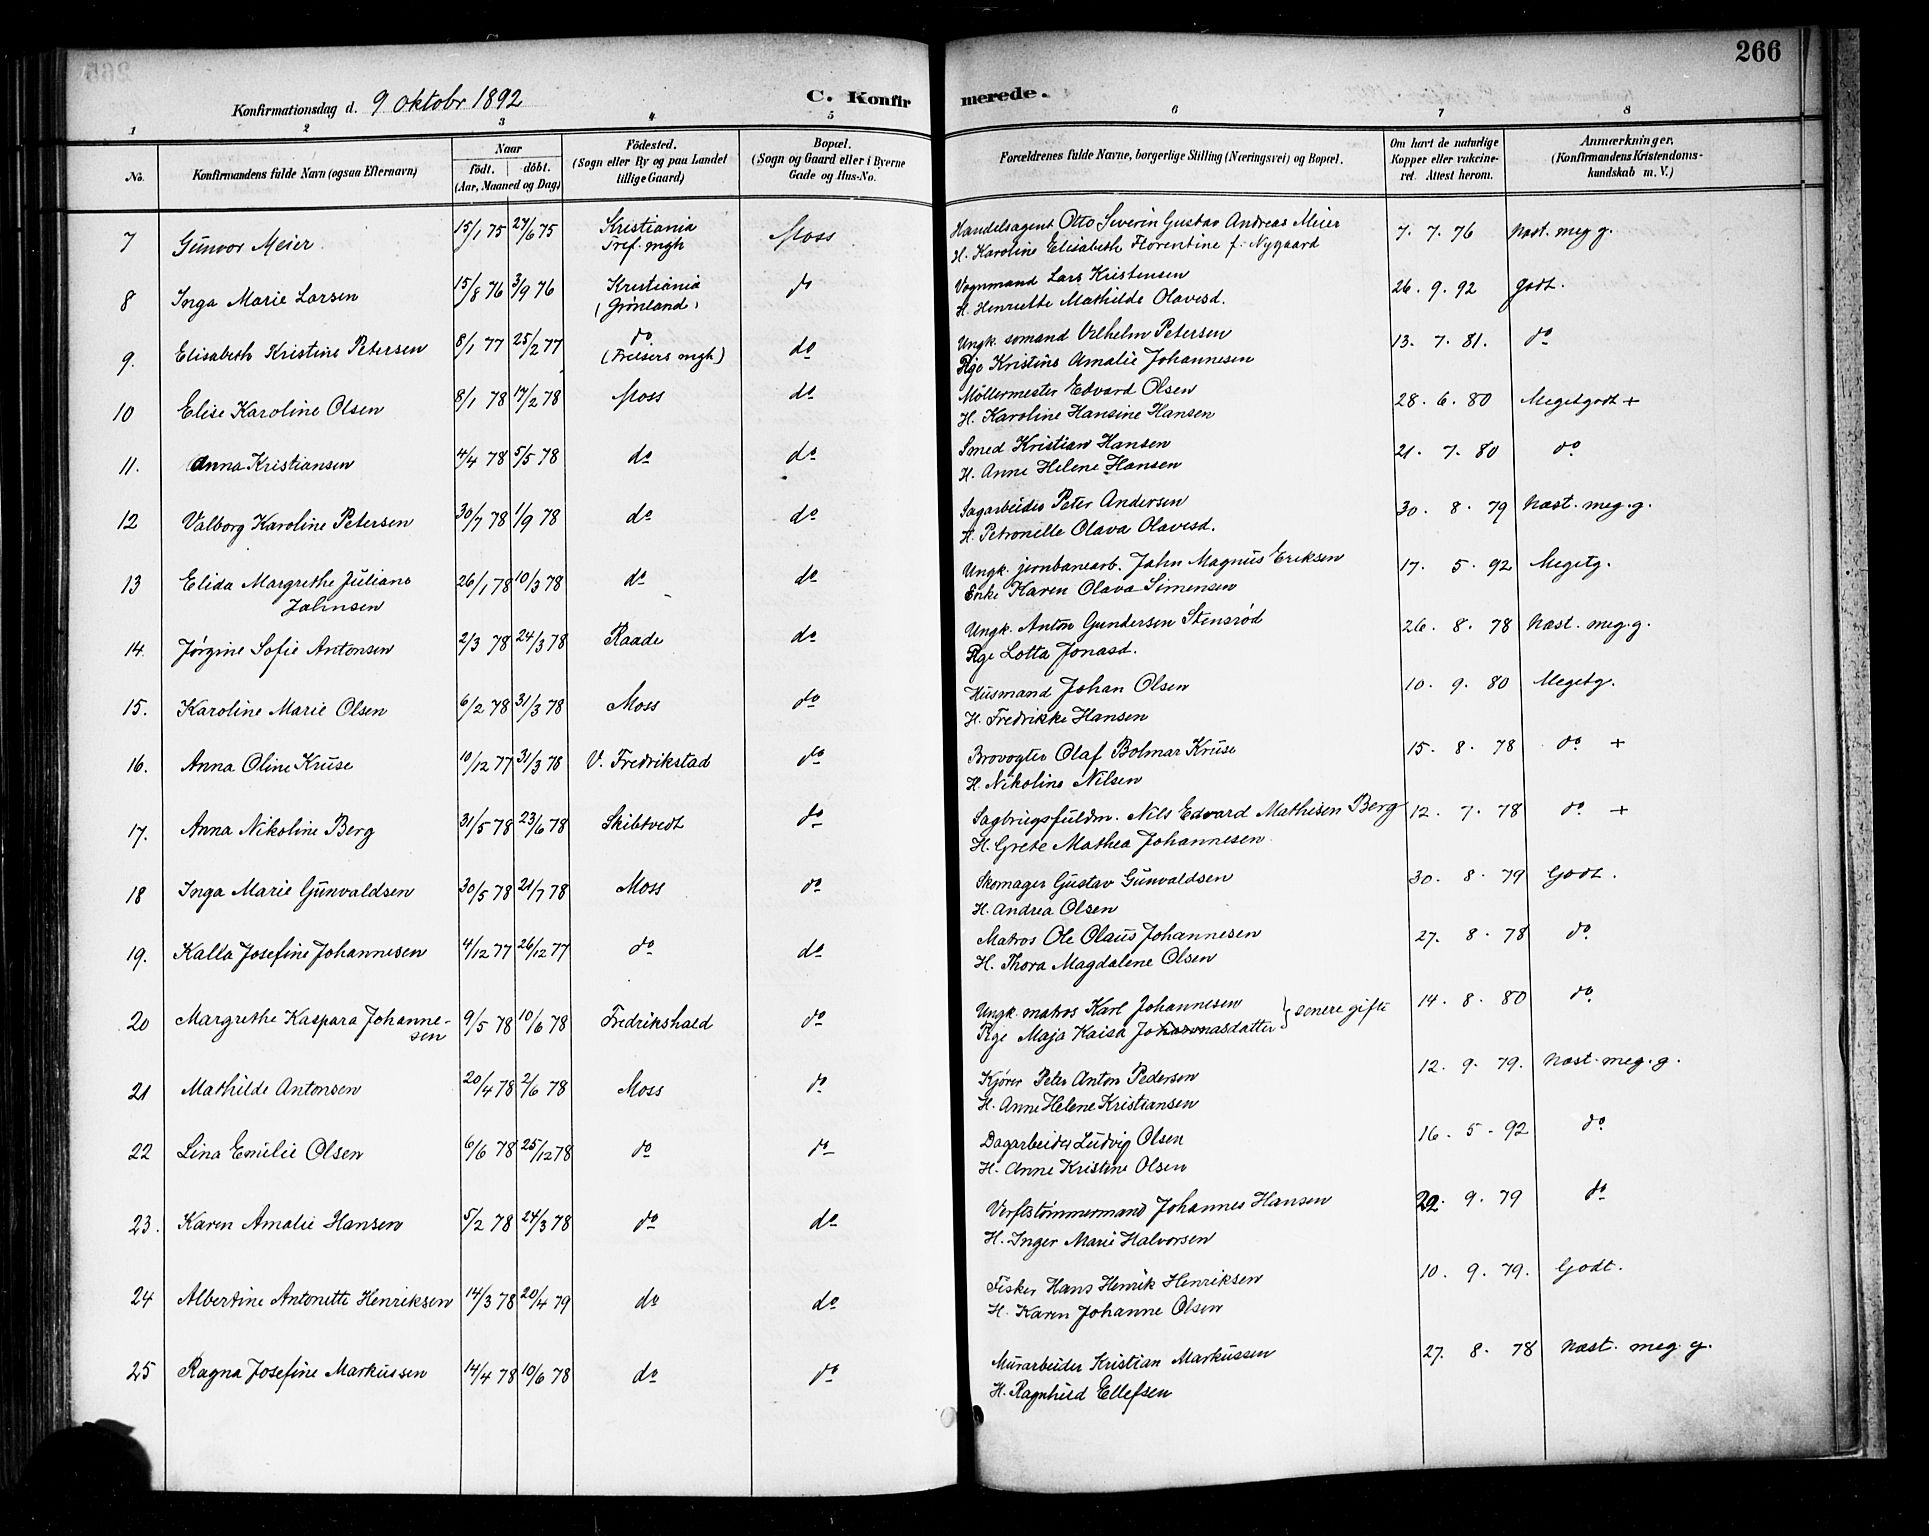 266
Konfirmationsdag d. 9 Oktobr 1892
C. Konfirmerede.
1 2 3 4 5 6 7 8
No.
Konfirmandens fulde Navn (ogsaa Efternavn)
Naar
født. døbt.
(Aar, Maaned og Dag)
Fødested.
(Sogn eller By og paa Landet
tillige Gaard)
Bopæl.
(Sogn og Gaard eller i Byerne
Gade og Hus-No.
Forældrenes fulde Navne, borgerlige Stilling (Næringsvei) og Bopæl.
Om havt de naturlige
Kopper eller vakcine-
ret. Attest herom.
Anmærkninger,
(Konfirmandens Kristendoms-
kundskab m. V.)
7 Gunvor Meier 15/1 75 27/6 75 Kristiania Moss Handelsagent Otto Severin Gustav Andreas Meier 7. 7. 76 Næst. meg g.
Tref. mgh H. Karoline Elisabeth Florentine f. Nygaard
8 Inga Marie Larsen 15/8 76 3/9 76 Kristiania do Vognmand Lars Kristensen 26. 9. 92 Godt.
(Grønland) H. Henriette Mathilde Olavesd.
9. Elisabeth Kristine Petersen 8/1 77 25/2 77 do do Ungk. sømand Vilhelm Petersen 13. 7. 81. do
(Frelsers mgh) Pge Kristine Amalie Johannesen
10 Elise Karoline Olsen 8/1 78 17/2 78 Moss do Møllermester Edvard Olsen 28. 6. 80 Megetgodt +
H. Karoline Hansine Hansen
11. Anna Kristiansen 4/4 78 5/5 78 do do Smed Kristian Hansen 21. 7. 80 do
H. Anne Helene Hansen
12 Valborg Karoline Petersen 30/7 78 1/9 78 do do Sagarbeider Peter Andersen 30. 8. 79 Næst. meg. g.
H. Petronelle Olava Olavesd.
13 Elida Margrethe Juliane 26/1 78 10/3 78 do do Ungk. jernbanearb. John Magnus Eriksen 17. 5. 92 Megetg.
Johnsen Enke Karen Olava Simensen
14. Jørgine Sofie Antonsen 2/3 78 24/3 78 Raade do Ungk. Anton Gundersen Stensrød 26. 8. 78 Næst. meg. g.
Pge Lotta Jonasd.
15. Karoline Marie Olsen 6/2 78 31/3 78 Moss do Husmand Johan Olsen 10. 9. 80 Megetg.
H. Fredrikke Hansen
16. Anna Oline Kruse 10/12 77 31/3 78 V. Fredrikstad do Brovogter Olaf Bolmar Kruse 15. 8. 78 do +
H. Nikoline Nilsen
17. Anna Nikoline Berg 31/5 78 23/6 78 Skibtvedt do Sagbrugsfuldm. Nils Edvard Mathisen Berg 12. 7. 78 do +
H. Grete Mathea Johannesen.
18 Inga Marie Gunvaldsen 30/5 78 21/7 78 Moss do Skomager Gustav Gunvaldsen 30. 8. 79 Godt.
H. Andrea Olsen
19. Kalla Josefine Johannesen 4/12 77 26/12 77 do do Matros Ole Olaus Johannesen 27. 8. 78 do
H. Thora Magdalene Olsen
20 Margrethe Kaspara Johanne- 9/5 78 10/6 78 Fredrikshald do Ungk. matros Karl Johannesen } senere gifte 14. 8. 80 do
sen Pge Maja Kaisa Jonasdatter
21 Mathilde Antonsen 20/4 78 2/6 78 Moss do Kjører Peter Anton Pedersen 12. 9. 79. Næst. meg. g.
H. Anne Helene Kristiansen
22 Lina Emilie Olsen 6/6 78 25/12 78 do do Dagarbeider Ludvig Olsen 16. 5. 92 do
H. Anne Kristine Olsen
23. Karen Amalie Hansen 5/2 78 24/3 78 do do Verftstømmermand Johannes Hansen 22. 9. 79 do
H. Inger Marie Halvorsen
24 Albertine Antonette Henriksen 14/3 78 20/4 79 do do Fisker Hans Henrik Henriksen 10. 9. 79. Godt.
H. Karen Johanne Olsen
25 Ragna Josefine Markussen 14/4 78 10/6 78 do do Murarbeider Kristian Markussen 27. 8. 78 Næst. meg. g.
H. Ragnhild Ellefsen